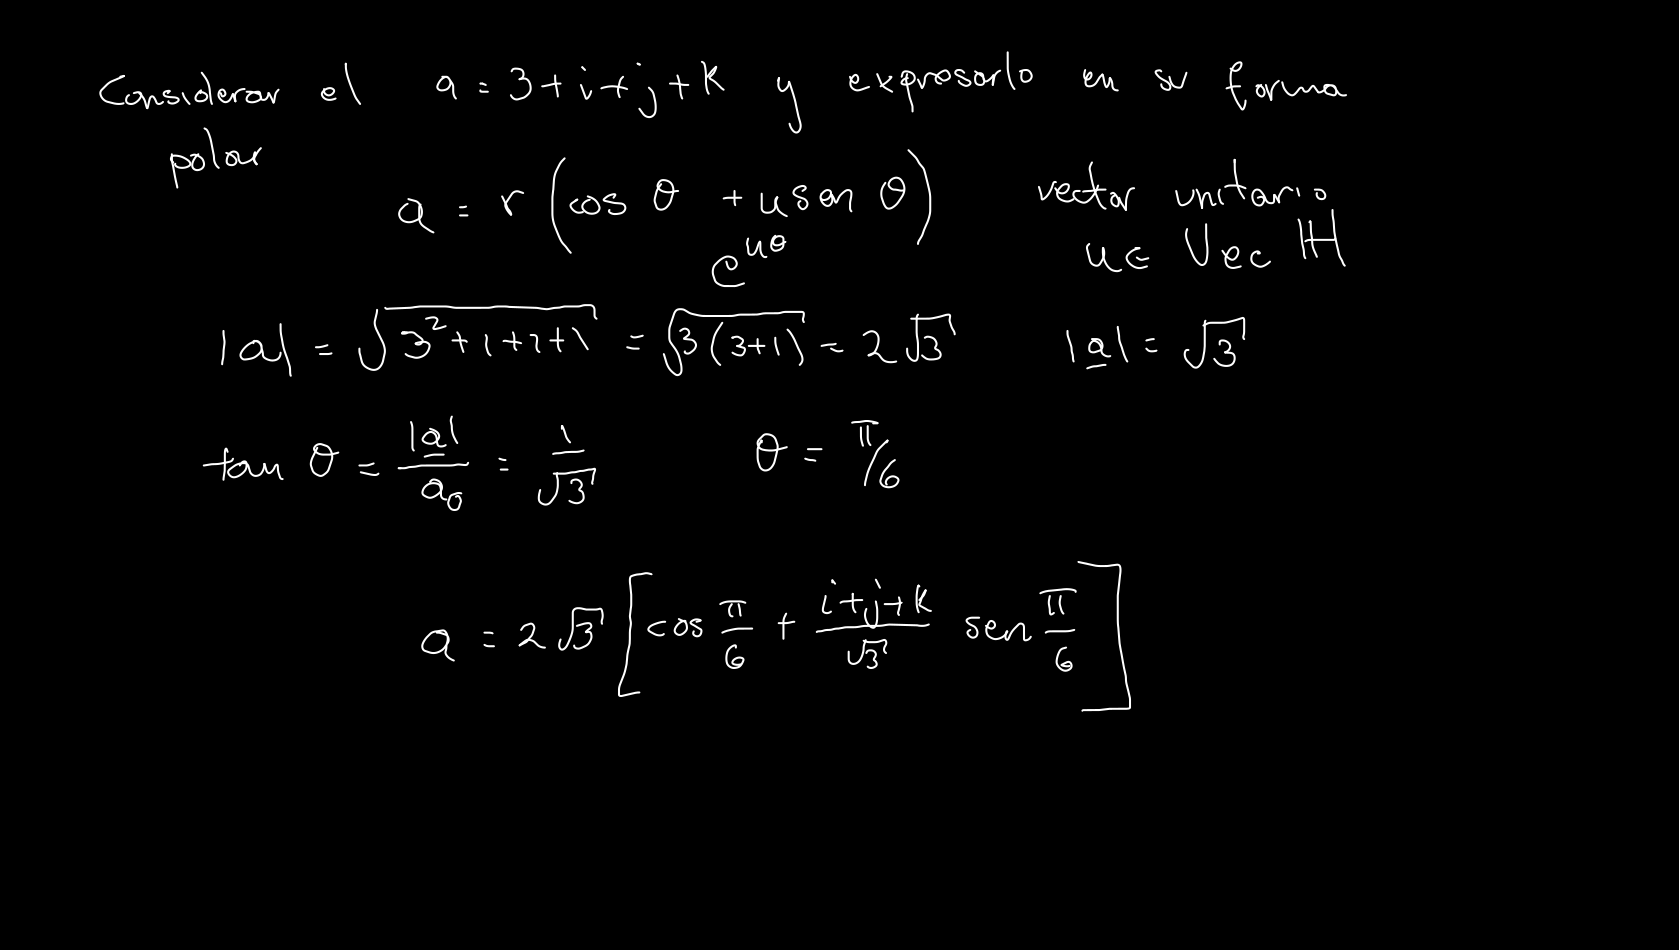 Considerar el a = 3 + i + j + k y expresarlo en su forma
polar
a = r (cos θ + u sen θ) vector unitario
e^{uθ} u ∈ Vec ℍ
|a| = √(3² + 1 + 1 + 1) = √(3(3+1)) = 2√3 |a̲| = √3
tan θ = |a̲|/a₀ = 1/√3 θ = π/6
a = 2√3 [cos π/6 + (i+j+k)/√3 sen π/6]